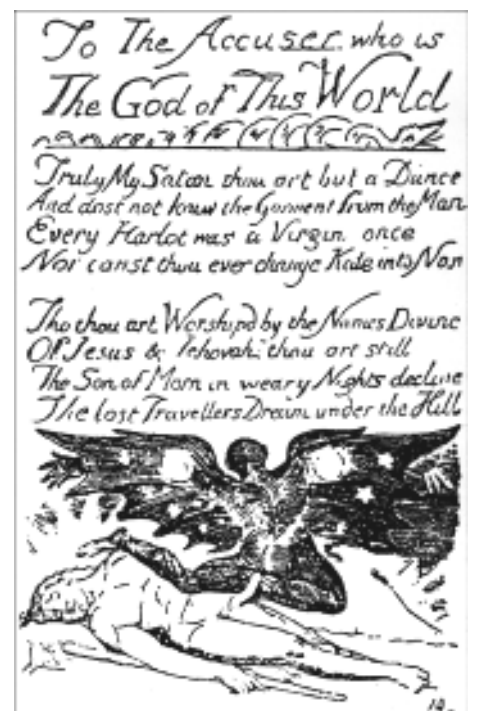 To The Accuser who is
The God of This World
Truly My Satan thou art but a Dunce
And dost not know the Garment from the Man
Every Harlot was a Virgin once
Nor canst thou ever change Kate into Nan
Tho thou art Worshipd by the Names Divine
Of Jesus & Jehovah: thou art still
The Son of Morn in weary Nights decline
The lost Travellers Dream under the Hill